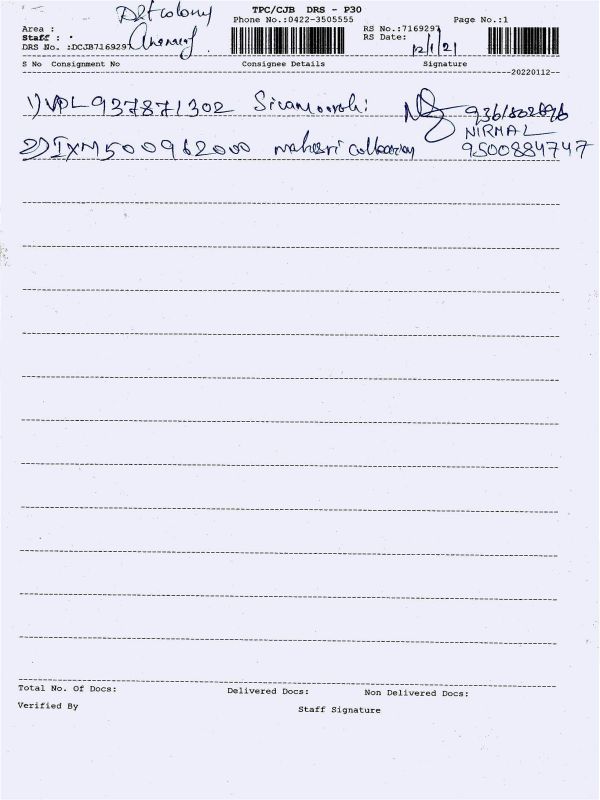 TPC/CJB DRS - P30
Phone No.:0422-3505555
Page No.:1
colony
Area :
Staff :
DRS No. :DCJB7169297
RS No.:7169297
RS Date: 12/1/21
S No Consignment No Consignee Details Signature
20220112
1) VPL937871302
2) IXM500962000 9500884747
NIRMAL
Total No. Of Docs: Delivered Docs: Non Delivered Docs:
Verified By Staff Signature